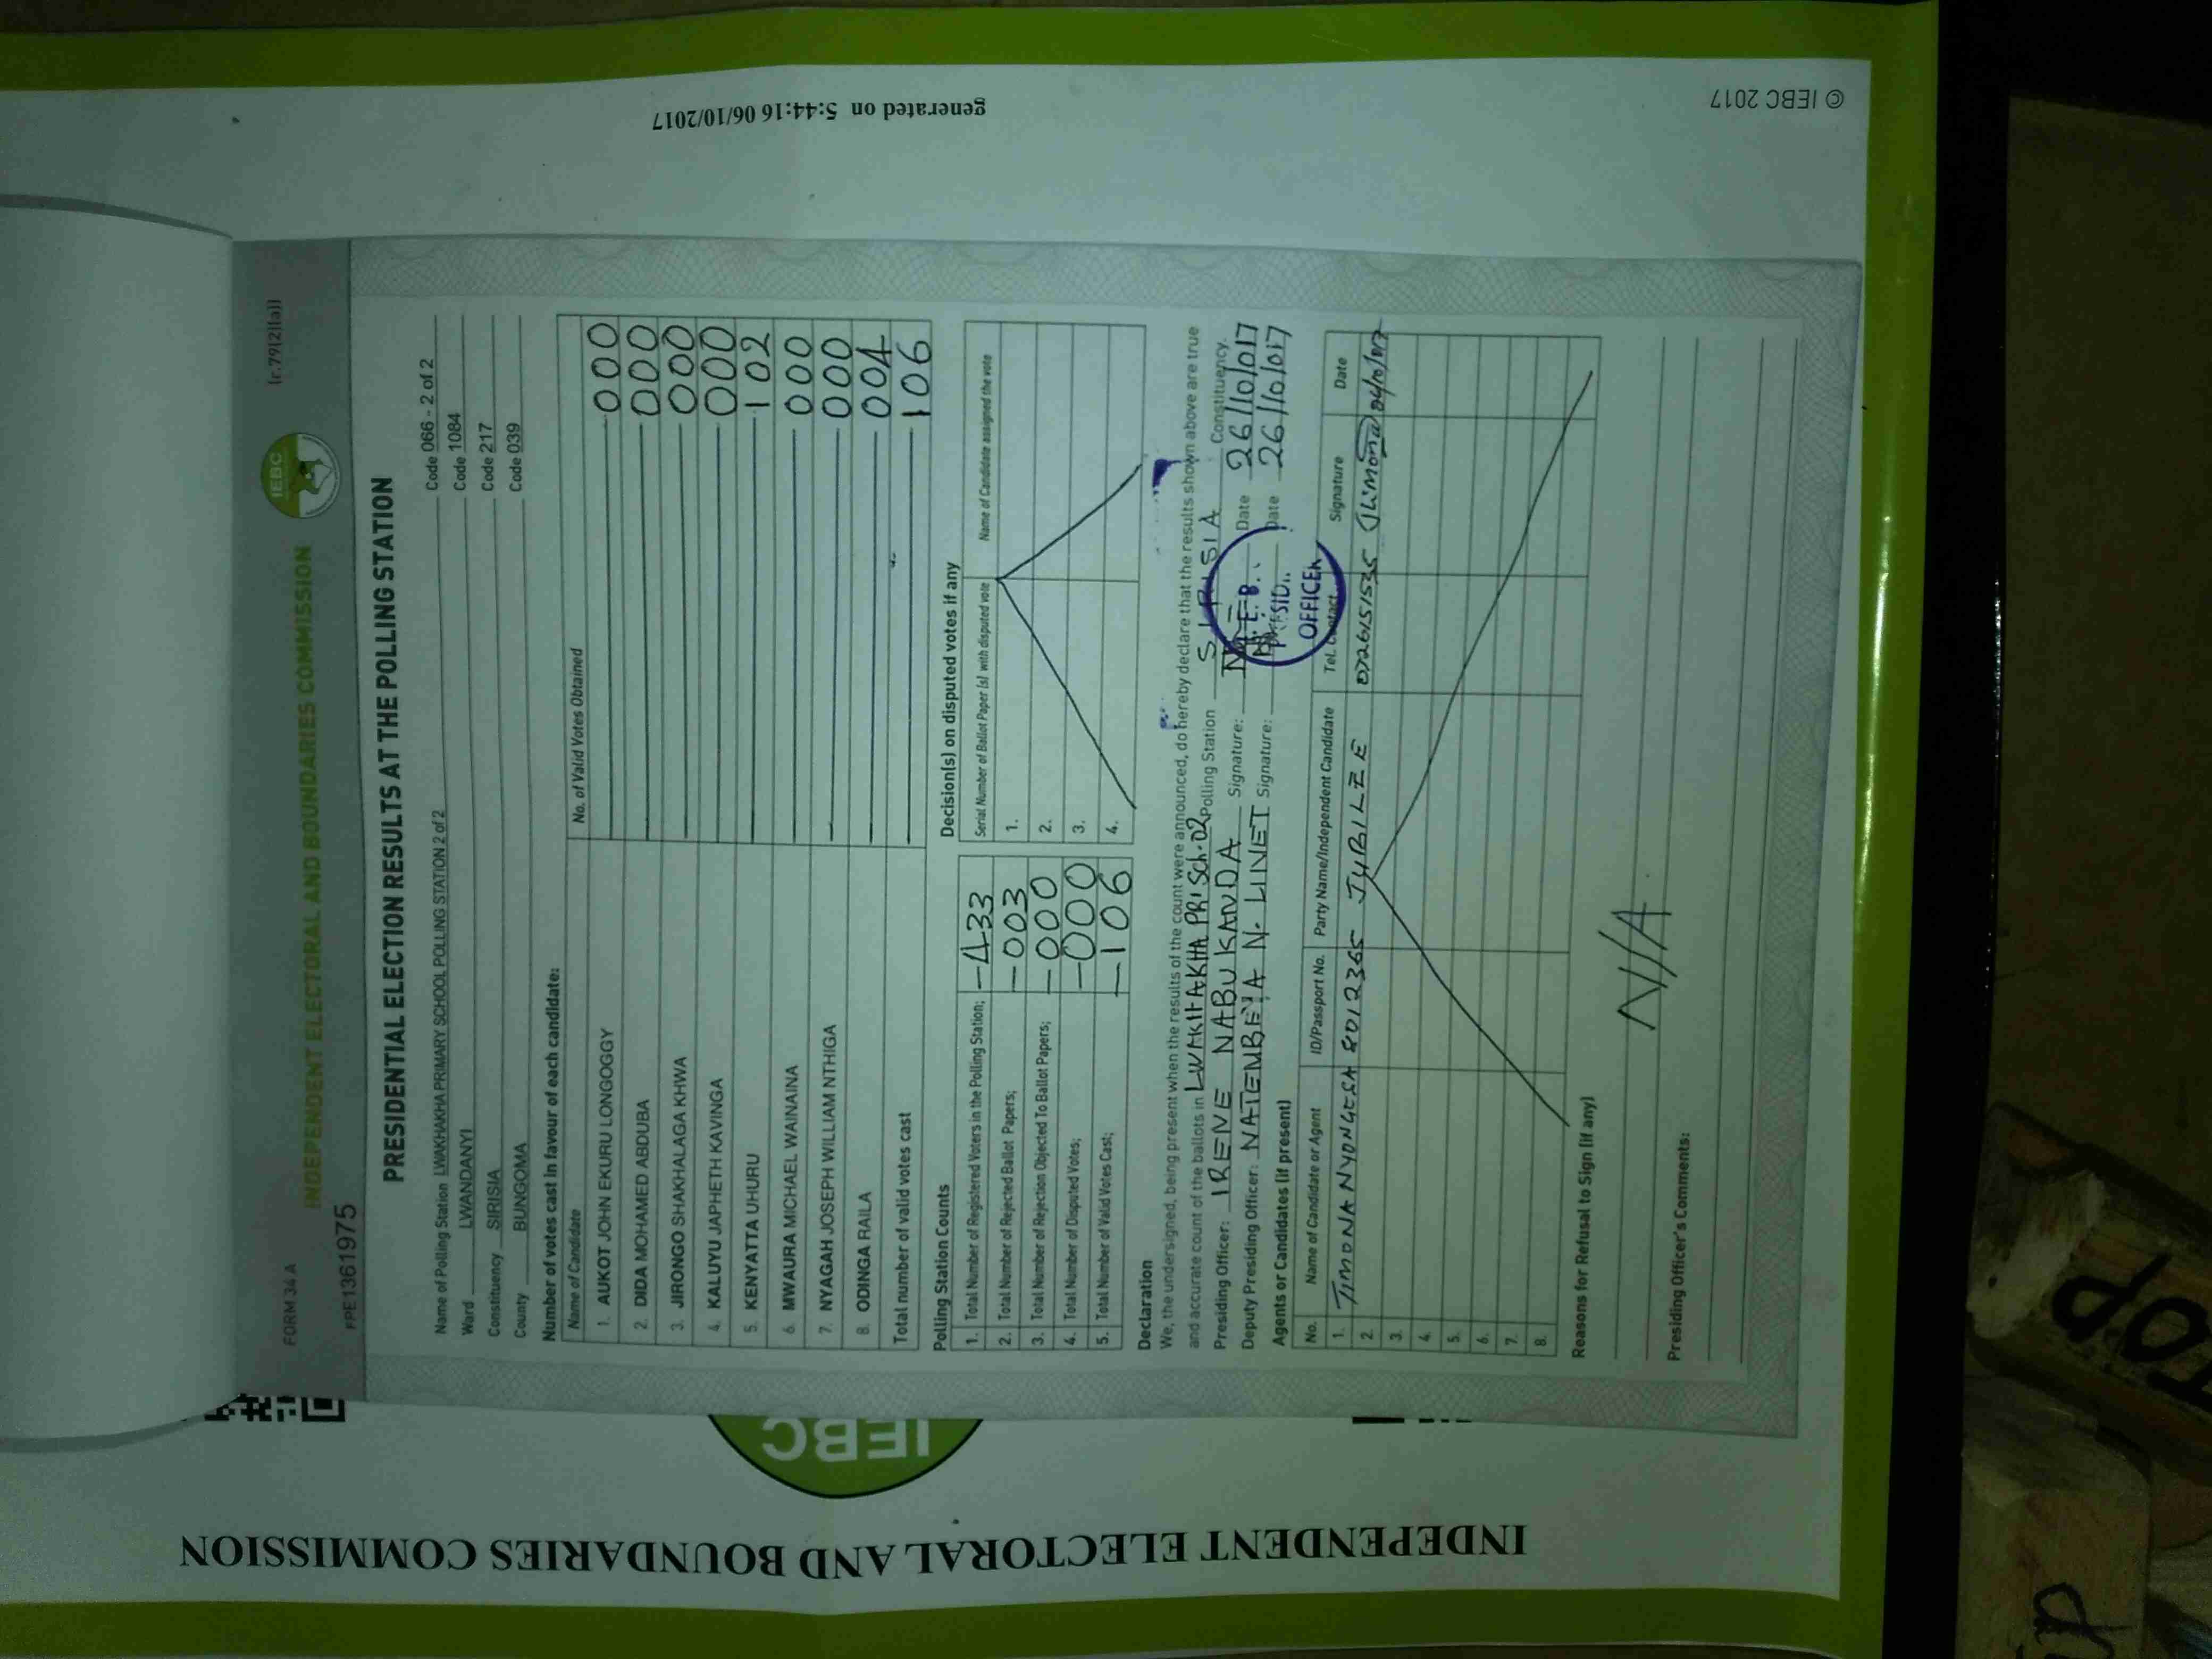 FORM 34 A
(r.79(2)(a))
IEBC
INDEPENDENT ELECTORAL AND BOUNDARIES COMMISSION
PPE1361975
PRESIDENTIAL ELECTION RESULTS AT THE POLLING STATION
Name of Polling Station LWAKHAKHA PRIMARY SCHOOL POLLING STATION 2 of 2 Code 066 - 2 of 2
Ward LWANDANYI Code 1084
Constituency SIRISIA Code 217
County BUNGOMA Code 039
Number of votes cast in favour of each candidate:
Name of Candidate No. of Valid Votes Obtained
1. AUKOT JOHN EKURU LONGOGGY 000
2. DIDA MOHAMED ABDUBA 000
3. JIRONGO SHAKHALAGA KHWA 000
4. KALUYU JAPHETH KAVINGA 000
5. KENYATTA UHURU 102
6. MWAURA MICHAEL WAINAINA 000
7. NYAGAH JOSEPH WILLIAM NTHIGA 000
8. ODINGA RAILA 004
Total number of valid votes cast 106
Polling Station Counts
1. Total Number of Registered Voters in the Polling Station; 433
2. Total Number of Rejected Ballot Papers; 003
3. Total Number of Rejection Objected To Ballot Papers; 000
4. Total Number of Disputed Votes; 000
5. Total Number of Valid Votes Cast; 106
Decision(s) on disputed votes if any
Serial Number of Ballot Paper (s) with disputed vote Name of Candidate assigned the vote
1.
2.
3.
4.
Declaration
We, the undersigned, being present when the results of the count were announced, do hereby declare that the results shown above are true
and accurate count of the ballots in LWAKHAKHA PRI SCH-02 Polling Station SIRISIA Constituency.
Presiding Officer: IRENE NABUKANDA Signature: Date 26/10/017
Deputy Presiding Officer: NATEMBEYA N. LINET Signature: Date 26/10/017
OFFICER
Agents or Candidates (if present)
No. Name of Candidate or Agent ID/Passport No. Party Name/Independent Candidate Tel. Contact Signature Date
1. TIMONA NYONGESA 8012365 JUBILEE 0726151535
2.
3.
4.
5.
6.
7.
8.
Reasons for Refusal to Sign (if any)
N/A
Presiding Officer's Comments:
INDEPENDENT ELECTORAL AND BOUNDARIES COMMISSION
IEBC
generated on 5:44:16 06/10/2017
© IEBC 2017
TOP